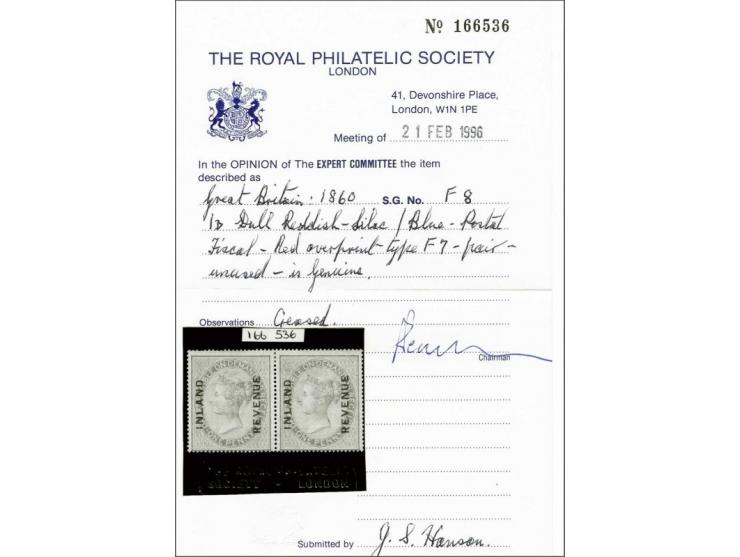 Nº 166536
THE ROYAL PHILATELIC SOCIETY
LONDON
41, Devonshire Place,
London, W1N 1PE
Meeting of 21 FEB 1996
In the OPINION of The EXPERT COMMITTEE the item
described as
Great Britain: 1860 S.G. No. F 8
1D Dull Reddish-Lilac / Blue - Postal
Fiscal - Red overprint - type F7 - pair -
unused - is Genuine.
Observations Creased.
166 536
Chairman
INLAND REVENUE
ONE PENNY
INLAND REVENUE
ONE PENNY
SOCIETY - LONDON
Submitted by J. S. Hanson.